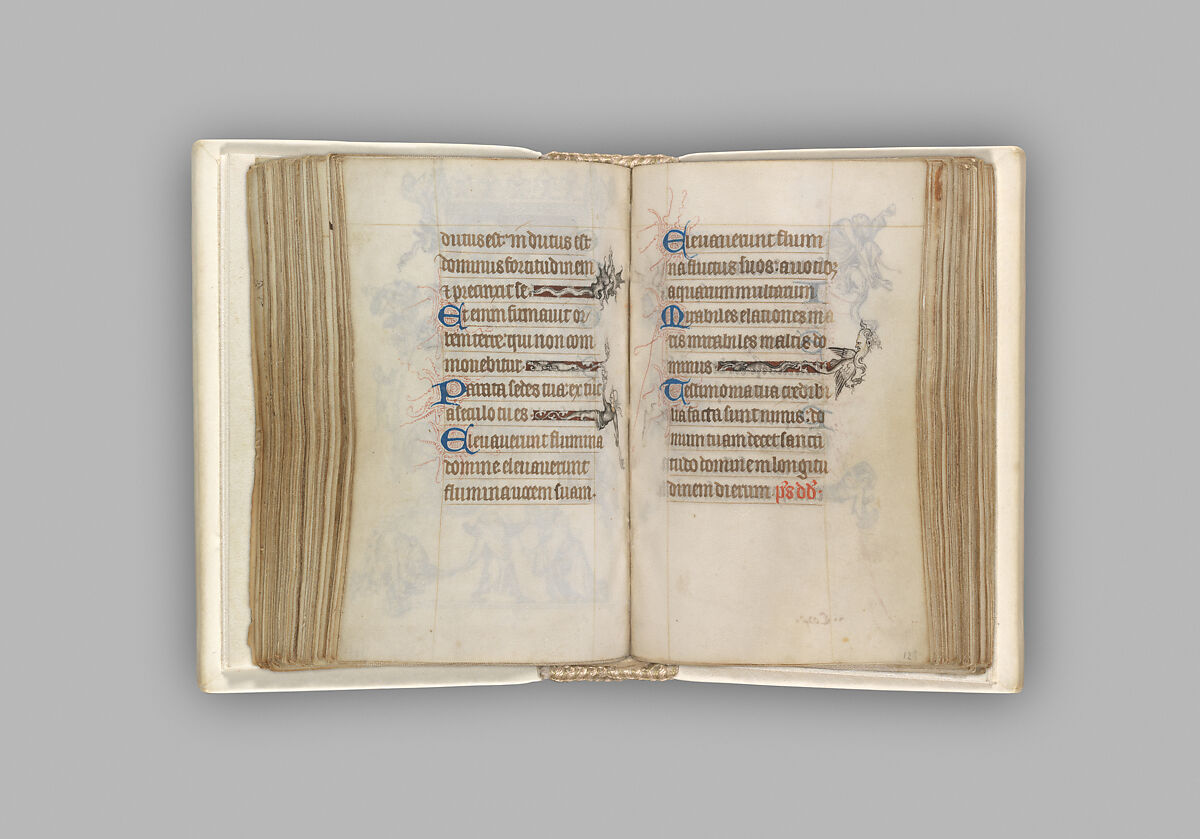 dutus est indutus est
dominus fortitudinem
⁊ precinxit se
Et enim firmauit or
bem terre: qui non com
monebitur
Parata sedes tua: ex tūc
a seculo tu es
Eleuauerunt flumina
domine eleuauerunt
flumina uocem suam.
Eleuauerunt flumi
na fluctus suos: a uocibꝫ
aquarum multarum
Mirabiles elationes ma
ris mirabiles maltis do
minus
Testimonia tua credibi
lia facta sunt nimis: do
mum tuam decet sancti
tudo domine in longitu
dinem dierum p̄s dd̄.